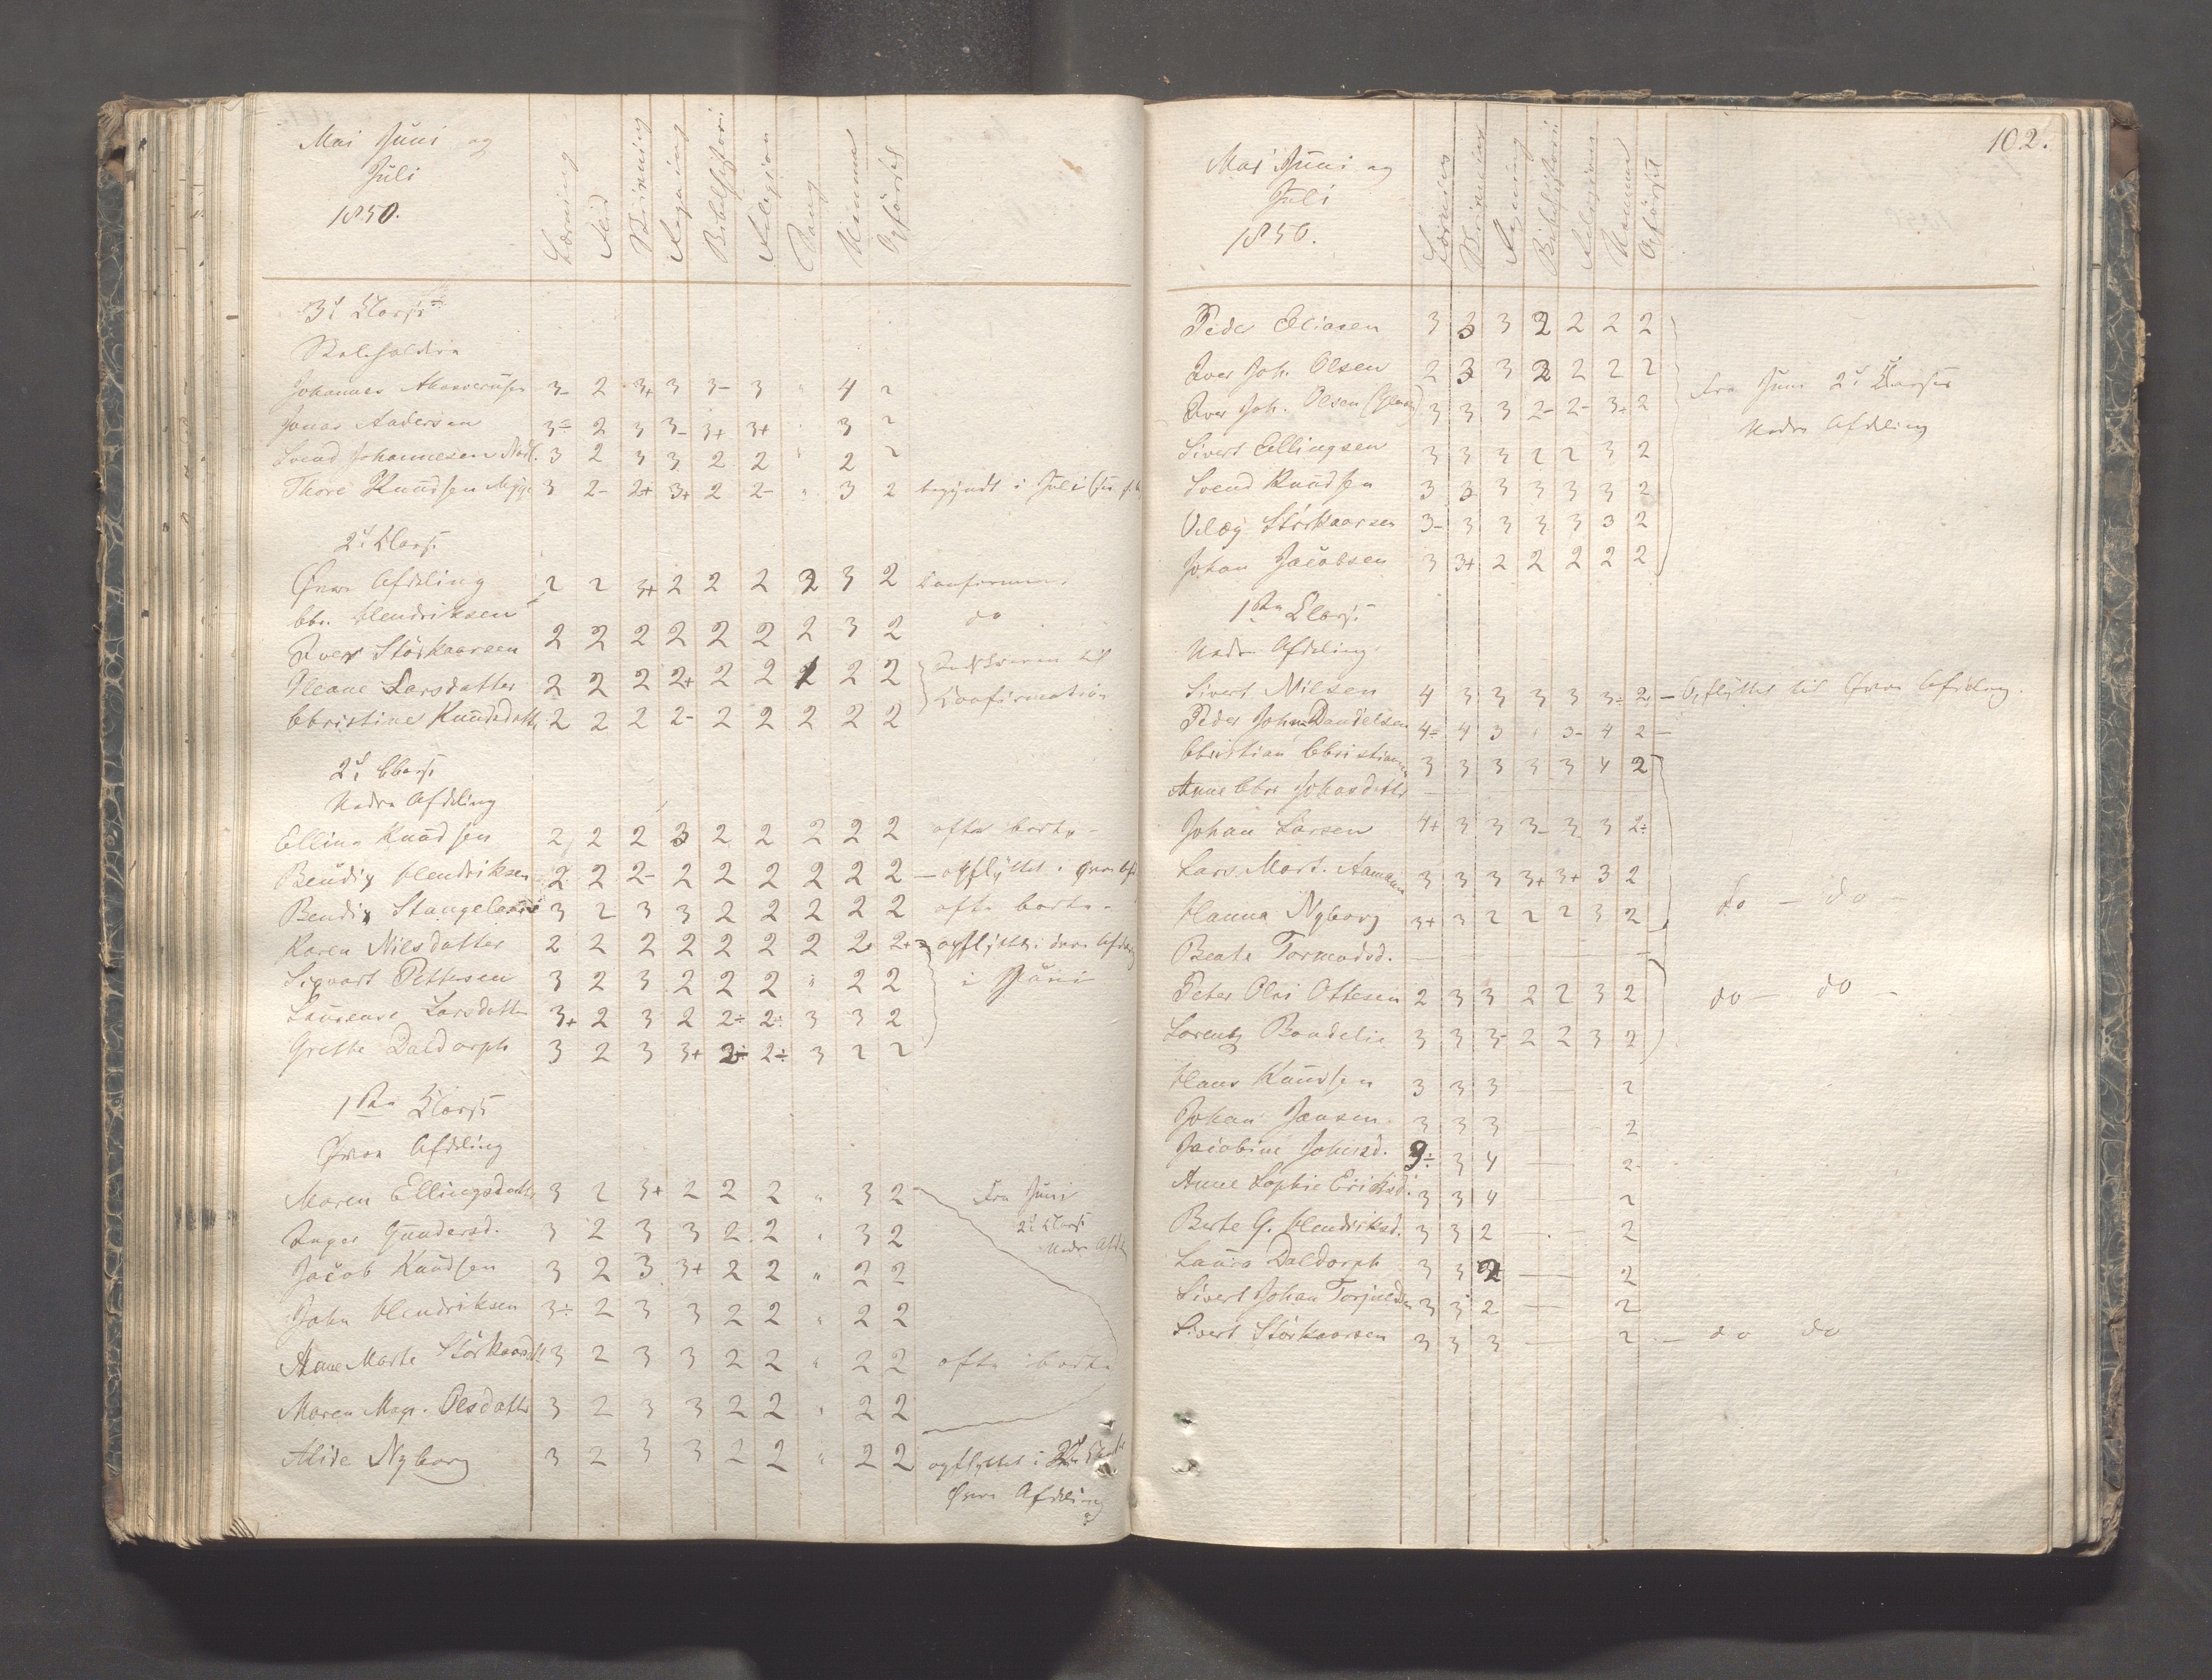 Mai Juni og
Juli
1850.
Læsning Flid Skrivning Regning Bibelhistorie Religion Sang Kommen Opførsel
3d Classe
Johannes 3- 2 3+ 3 3- 3 " 4 2
Jonas Andersen 3÷ 2 3 3- 3+ 3+ " 3 2
Svend Johannesen 3 2 3 3 2 2 " 2 2
Thore Knudsen 3 2- 2+ 3+ 2 2- " 3 2 begyndt i Juli
2d Classe
Øvre Afdeling 2 2 3+ 2 2 2 2 3 2
Chr. Hendriksen do
Iver Storkaarsen 2 2 2 2 2 2 2 3 2
Oleane Larsdatter 2 2 2 2+ 2 2 1 2 2 til
Christine Knudsdatt 2 2 2 2- 2 2 2 2 2 Confirmation
2d Classe
Nedre Afdeling
Elling Knudsen 2 2 2 3 2 2 2 2 2 ofte borte -
Bendix Hendriksen 2 2 2- 2 2 2 2 2 2 - opflyttet i øvre Afd
Bendix Stangeland 3 2 3 3 2 2 2 2 2 ofte borte -
Karen Nilsdatter 2 2 2 2 2 2 2 2+ 2+ opflyttet i øvre Afdeling
Sigvart Pettersen 3 2 3 2 2 2 " 2 2 i Juni
Laurense Larsdatter 3+ 2 3 2 2÷ 2÷ 3 3 2
Grethe Daldorph 3 2 3 3+ 2÷ 2÷ 3 2 2
1ste Classe
Øvre Afdeling
Maren Ellingsdatt 3 2 3+ 2 2 2 " 3 2 Fra Juni
Inger Gundersd. 3 2 3 3 2 2 " 3 2 2d Classe Nedre Afd
Jacob Knudsen 3 2 3 3+ 2 2 " 2 2
John Hendriksen 3÷ 2 3 3 2 2 " 2 2
Anne Marte Storkaarsdtt 3 2 3 3 2 2 " 2 2 ofte borte
Maren Mag. Olsdatter 3 2 3 3 2 2 " 2 2
Alide Nyborg 3 2 3 3 2 2 " 2 2 opflyttet i 2d Classe
Øvre Afdeling
102.
Mai Juni og
Juli
1850.
Læsning Skrivning Regning Bibelhistorie Religion Kommen Opførsel
Peder Eliasen 3 3 3 2 2 2 2
Iver Joh. Olsen 2 3 3 2 2 2 2 Fra Juni 2d Classes
Iver Joh. Olsen 3 3 3 2- 2- 3÷ 2 Nedre Afdeling
Sivert Ellingsen 3 3 3 2 2 3 2
Svend Knudsen 3 3 3 3 3 3 2
Storkaarsen 3- 3 3 3 3 3 2
Johan Jacobsen 3 3+ 2 2 2 2 2
1ste Classe
Nedre Afdeling
Sivert Nilsen 4 3 3 3 3 3÷ 2 - Opflyttet til Øvre Afdeling.
Peder John Danielsen 4÷ 4 3 " 3- 4 2 -
Christian Christiansen 3 3 3 3 3 4 2
Anne Chr Johasdatter
Johan Larsen 4+ 3 3 3- 3 3 2÷
Lars Mart. Aamaan 3 3 3 3+ 3+ 3 2
Hanna Nyborg 3+ 3 2 2 2 3 2 do - do -
Beate Tormodsd.
Peter Olai Ottesen 2 3 3 2 2 3 2 do - do -
Lorentz Bondelie 3 3 3- 2 2 3 2
Hans Knudsen 3 3 3 — — 2
Johan Jansen 3 3 3 — — 2
Jacobine Johnsd. 3÷ 3 4 — — 2
Anne Sophie Eriksd. 3 3 4 — — 2
Berte G. Hendriksd. 3 3 2 — — 2
Laurs Daldorph 3 3 2 — — 2
Sivert Johan Torjuelsen 3 3 2 — — 2
Sivert Storkaarsen 3 3 3 — — 2 - do do